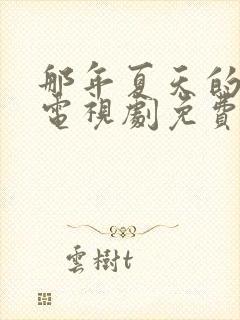 那年夏天的
電視劇免費
雲樹t